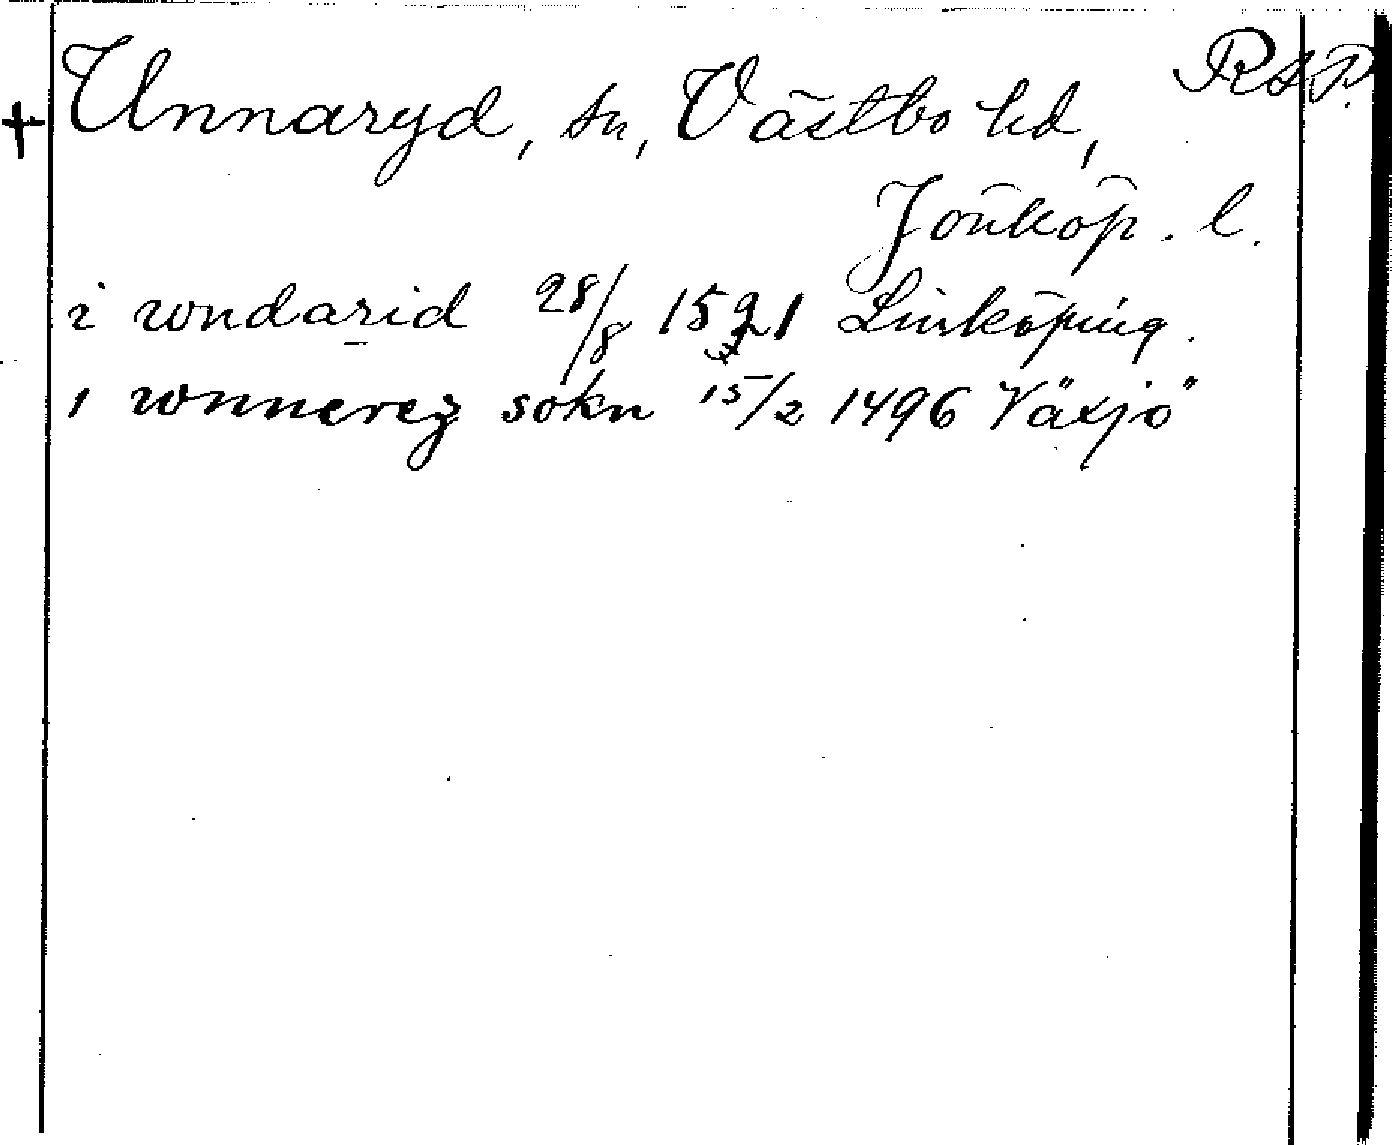 RAP.
+ Unnaryd, sn, Västbo hd,
Jönköp. l.
i wndarid 28/8 1521 Linköping.
i wnnerez sokn 15/2 1496 Växjö